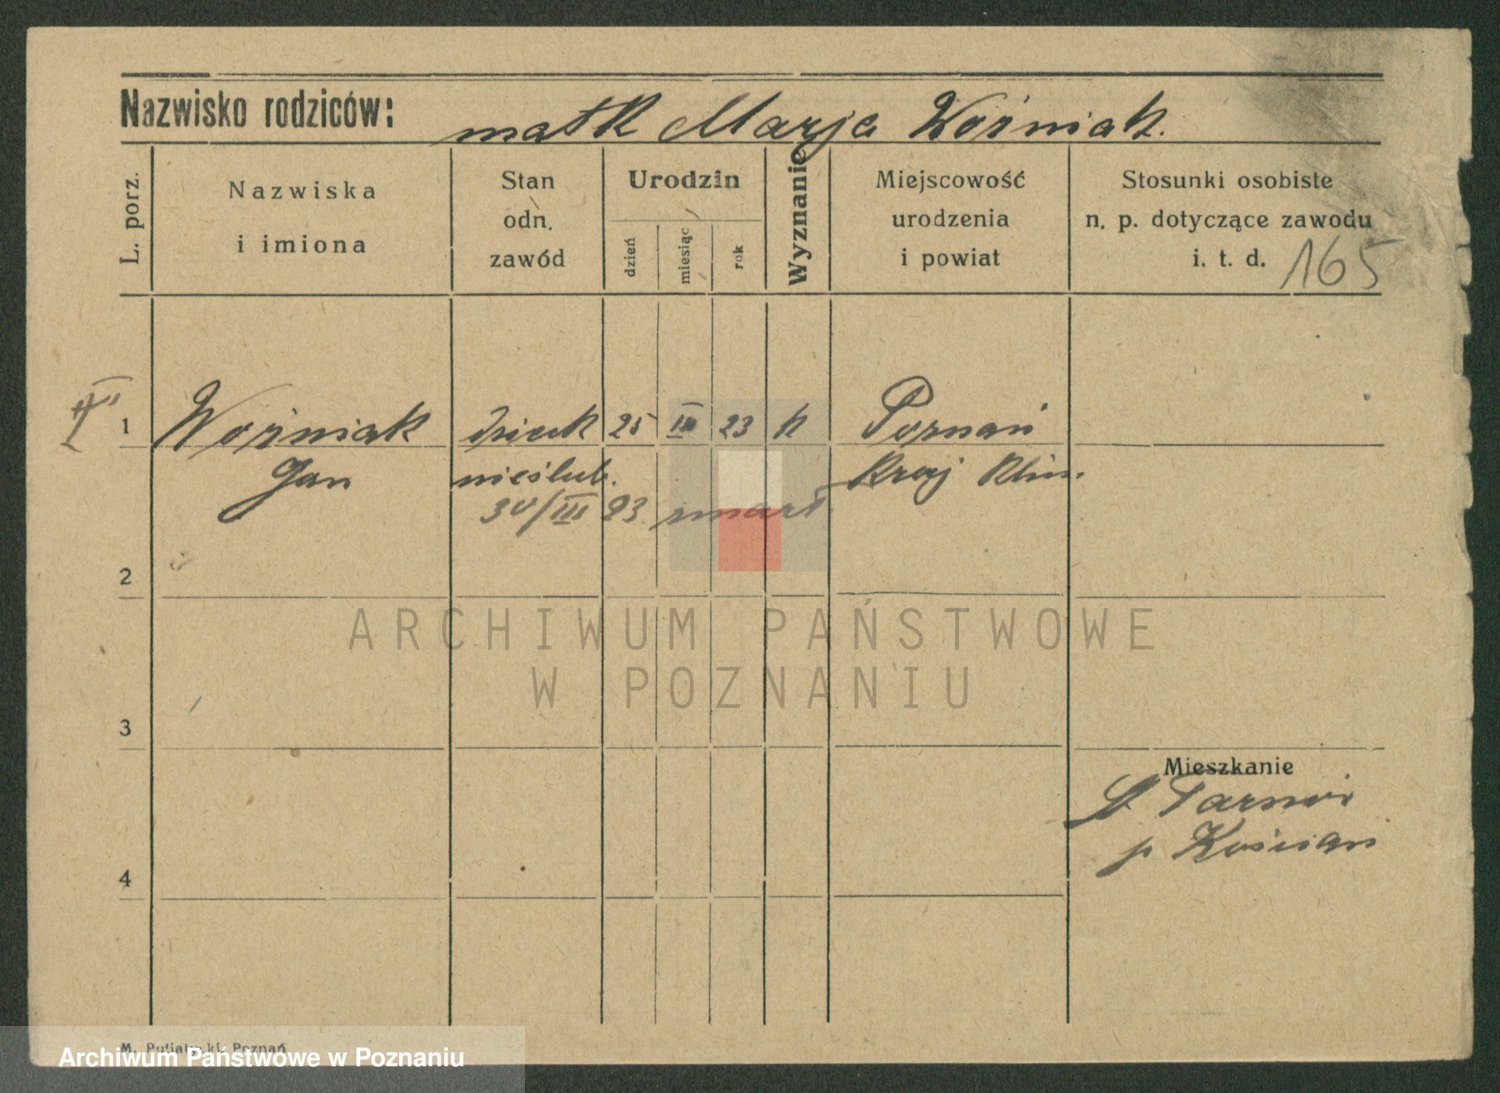 Nazwisko rodziców: matk Marja Woźniak.
L. porz.
Nazwiska
i imiona
Stan
odn.
zawód
Urodzin
dzień
miesiąc
rok
Wyznanie
Miejscowość
urodzenia
i powiat
Stosunki osobiste
n. p. dotyczące zawodu
i. t. d. 165
1 Woźniak dzieck 25 III 23 k Poznań
Jan nieślub. Kraj Klin.
30/III 23 zmarł
2
ARCHIWUM PAŃSTWOWE
W POZNANIU
3
Mieszkanie
Tarnów
p Kościan
4
M. Putiatycki Poznań
Archiwum Państwowe w Poznaniu